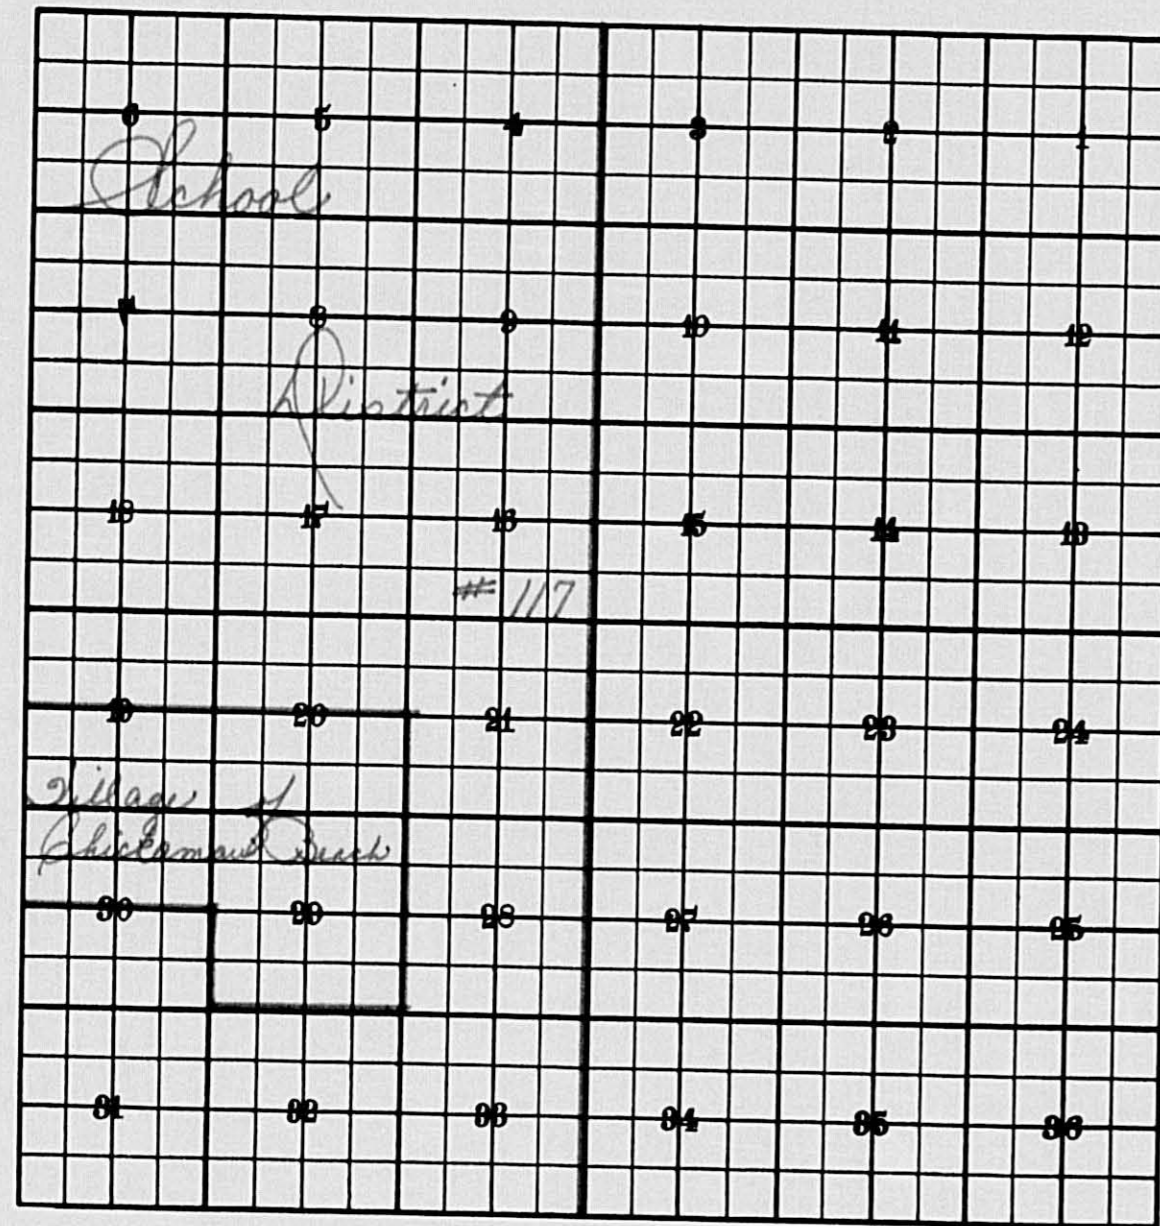 6 5 4 3 2 1
School
7 8 9 10 11 12
District
18 17 16 15 14 13
# 117
19 20 21 22 23 24
Village of
Beach
30 29 28 27 26 25
31 32 33 34 35 36